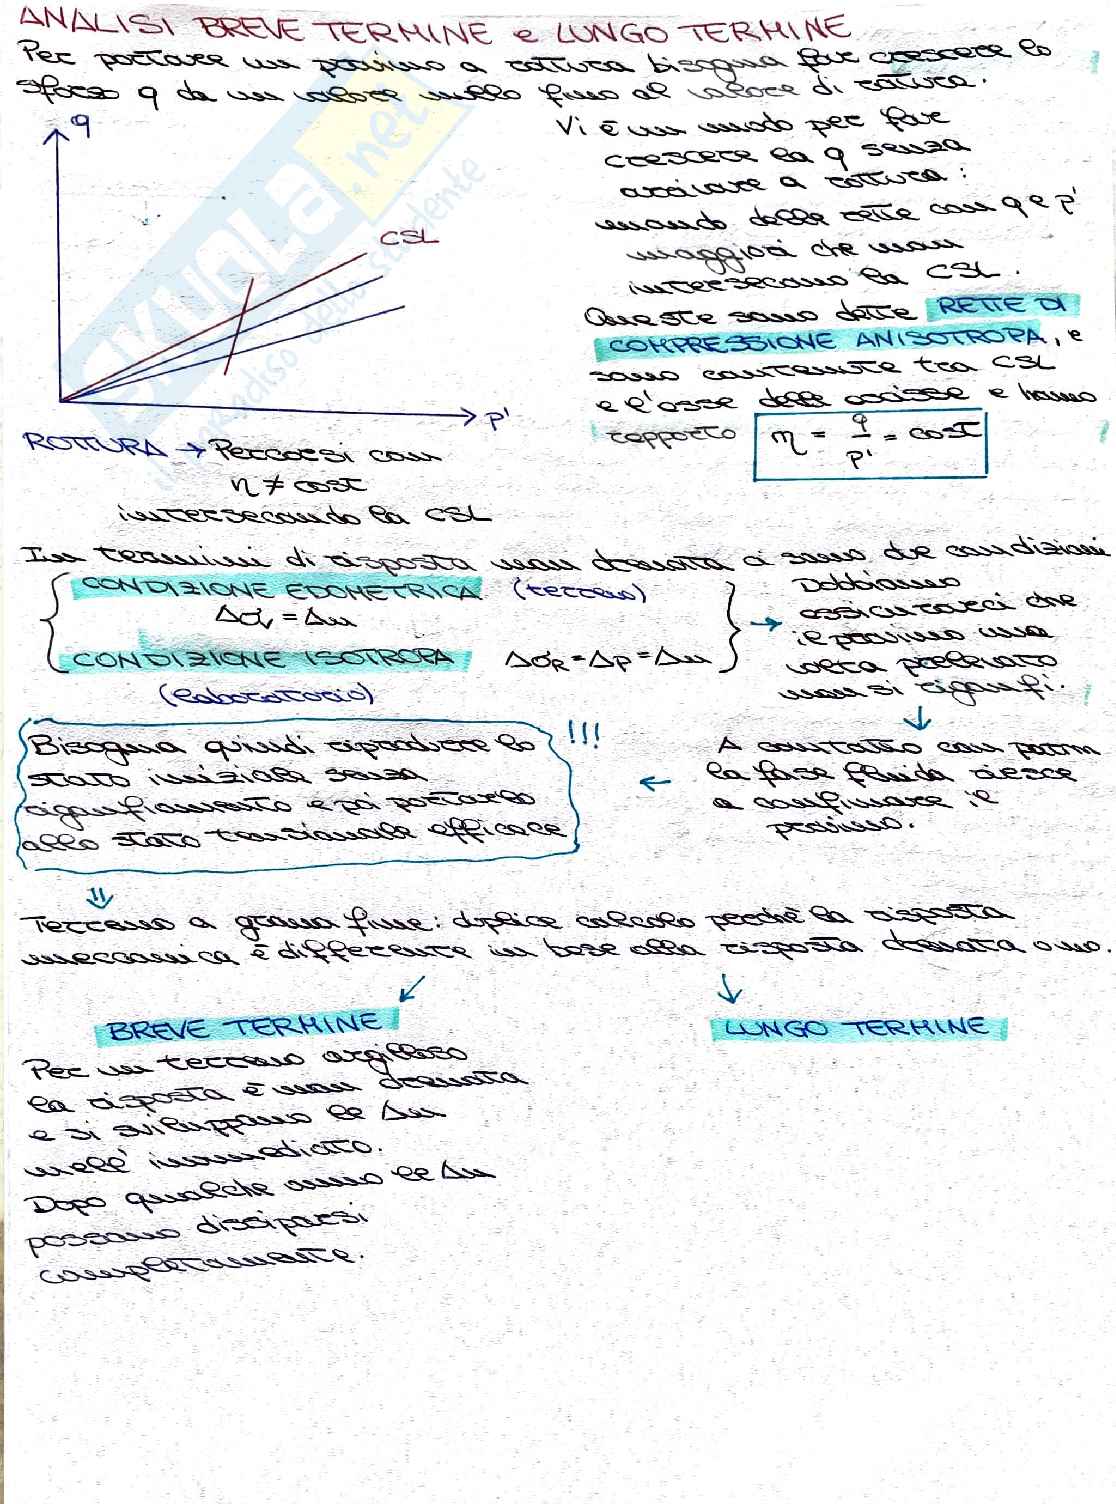 ANALISI BREVE TERMINE e LUNGO TERMINE
Per portare un provino a rottura bisogna far crescere lo
sforzo q da un valore nullo fino al valore di rottura.
q
CSL
p'
Vi è un modo per far
crescere la q senza
arrivare a rottura:
usando delle rette con q e p'
maggiori che non
intersecano la CSL.
Queste sono dette RETTE DI
COMPRESSIONE ANISOTROPA, e
sono contenute tra CSL
e l'asse delle ascisse e hanno
rapporto η = q/p' = cost
ROTTURA → Percorsi con
η ≠ cost
intersecando la CSL
In termini di risposta non drenata ci sono due condizioni
CONDIZIONE EDOMETRICA (terreno)
Δσv = Δu
CONDIZIONE ISOTROPA ΔσR = Δp = Δu
(laboratorio)
→ Dobbiamo
assicurarci che
il provino una
volta prelevato
non si rigonfi.
↓
A contatto con
la fase fluida riesce
a confinare il
provino.
←
!!!
Bisogna quindi riprodurre lo
stato iniziale senza
rigonfiamento e poi portarlo
allo stato tensionale efficace
⇓
Terreno a grana fine: duplice calcolo perchè la risposta
meccanica è differente in base alla risposta drenata o no.
BREVE TERMINE
Per un terreno argilloso
la risposta è non drenata
e si sviluppano le Δu
nell'immediato.
Dopo qualche anno le Δu
possono dissiparsi
completamente.
LUNGO TERMINE
SKUOLA.net
il paradiso dello studente